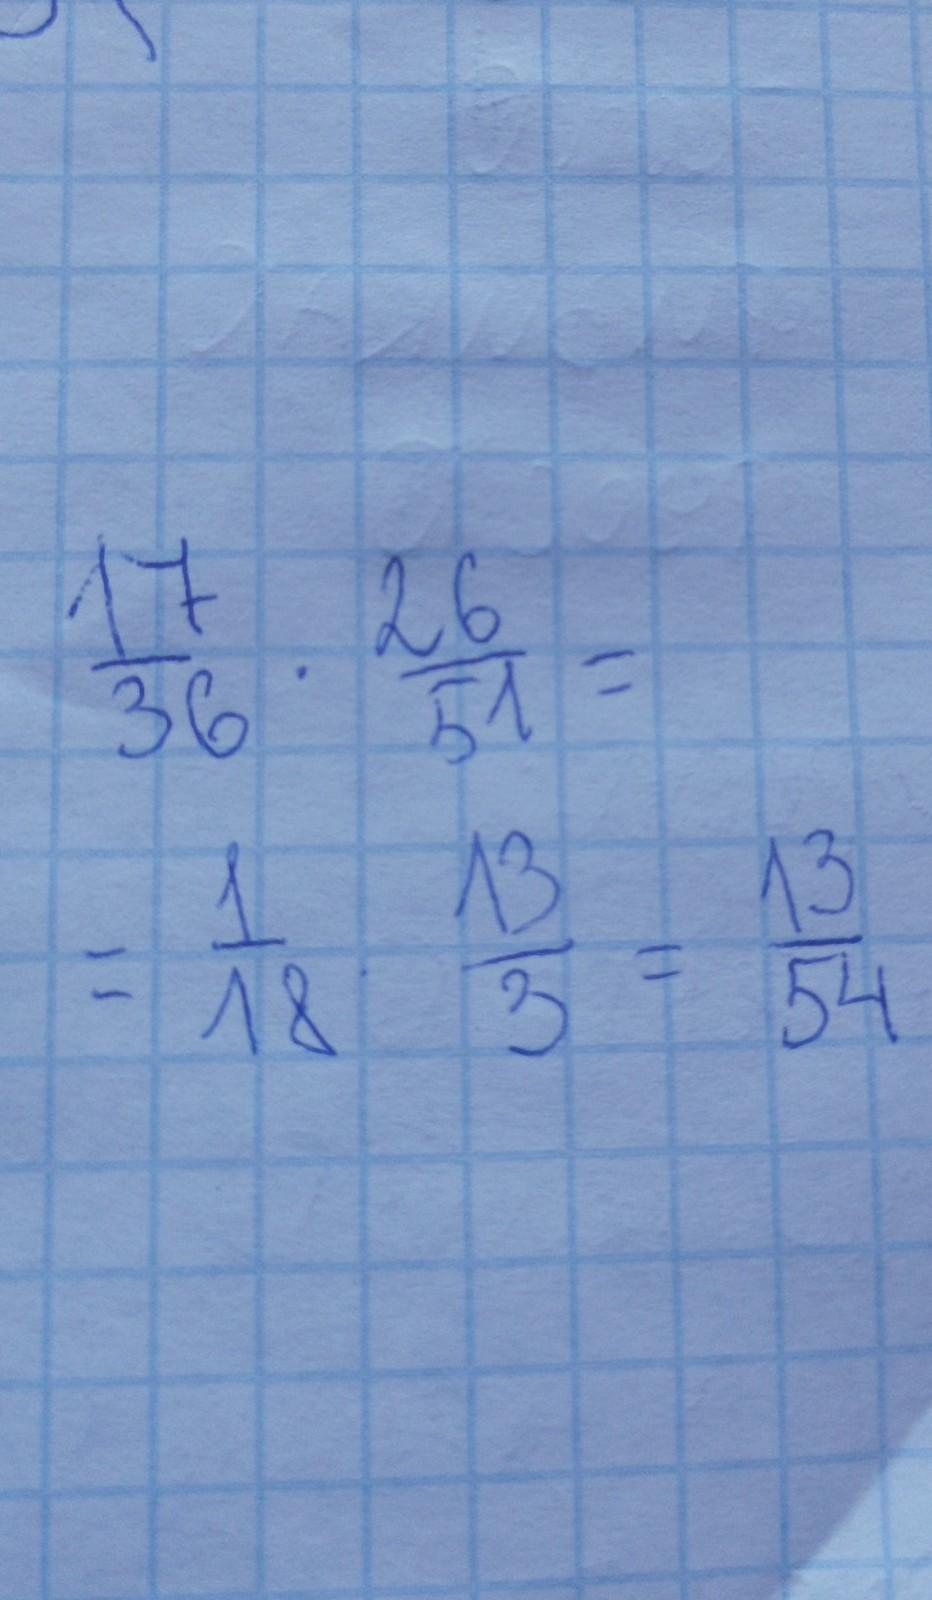 17/36 · 26/51 =
= 1/18 · 13/3 = 13/54